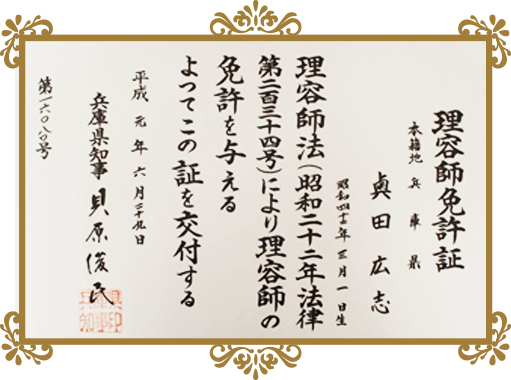 理容師免許証
本籍地 兵庫県
眞田広志
昭和四十三年三月一日生
理容師法(昭和二十二年法律
第二百三十四号)により理容師の
免許を与える
よつてこの証を交付する
平成元年六月二十九日
兵庫県知事 貝原俊民
第一六〇八〇号
兵庫県
知事印